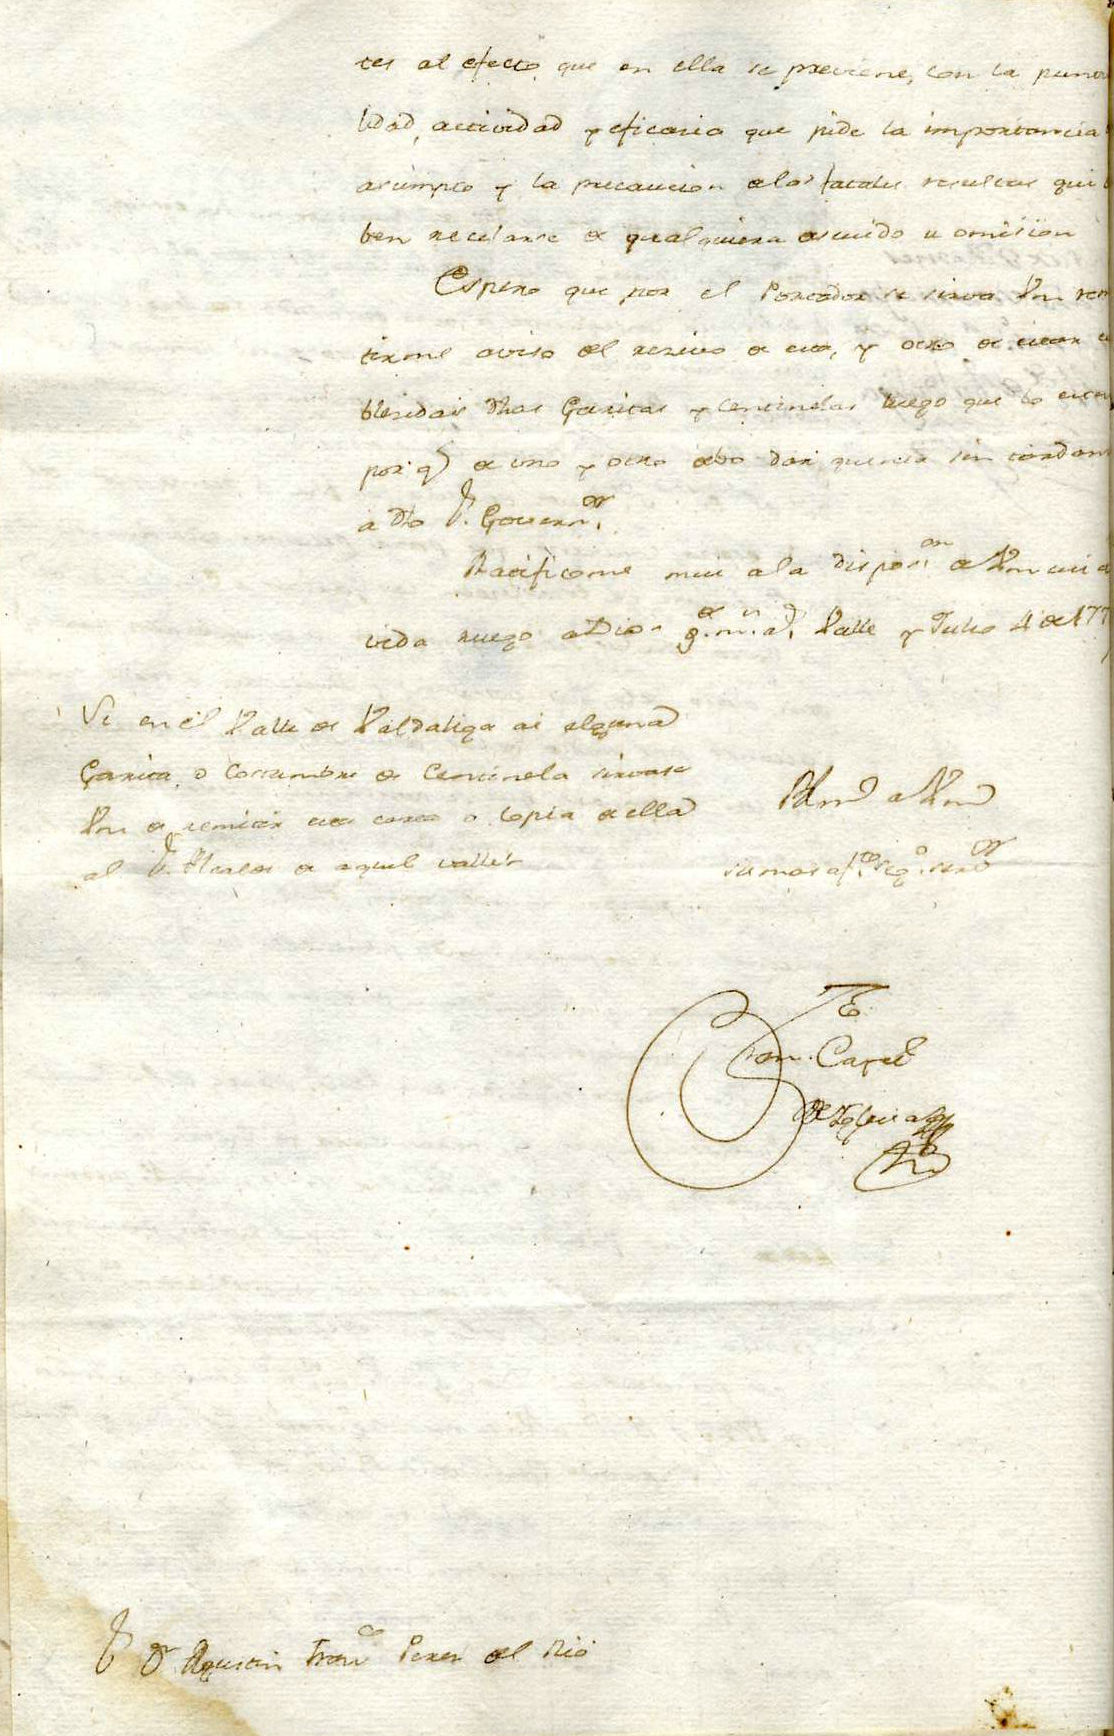 tes al efecto que en ella se previene, con la puntu
lidad, actividad y eficacia que pide la importancia
asumpto y la precaucion de los fatales resultas que
ben recelarse de qualquiera descuido u omision
Espero que por el Portador se sirva Vm rem
tirme aviso del recivo de esta, y otro de estar es
blecidas dhas Garitas y Centinelas luego que lo esten
por q de uno y otro debo dar quenta sin tardanza
a dho Sr. Governor.
Ratificome mui a la dispon de Vm cuia
vida ruego a Dios g.e m.s a.s Valle y Julio 4 de 177
Si en el Valle de Valdaliga ai alguna
Garita o Costumbre de Centinela sirvase
Vm de remitir esta carta o copia de ella
al Sr. Alcalde de aquel valle
BLm de Vm
su mas af.to seg.o serv.or
Fran. Cavel
de Iglesias
Sr Dn Agustin Franco Perez del Rio